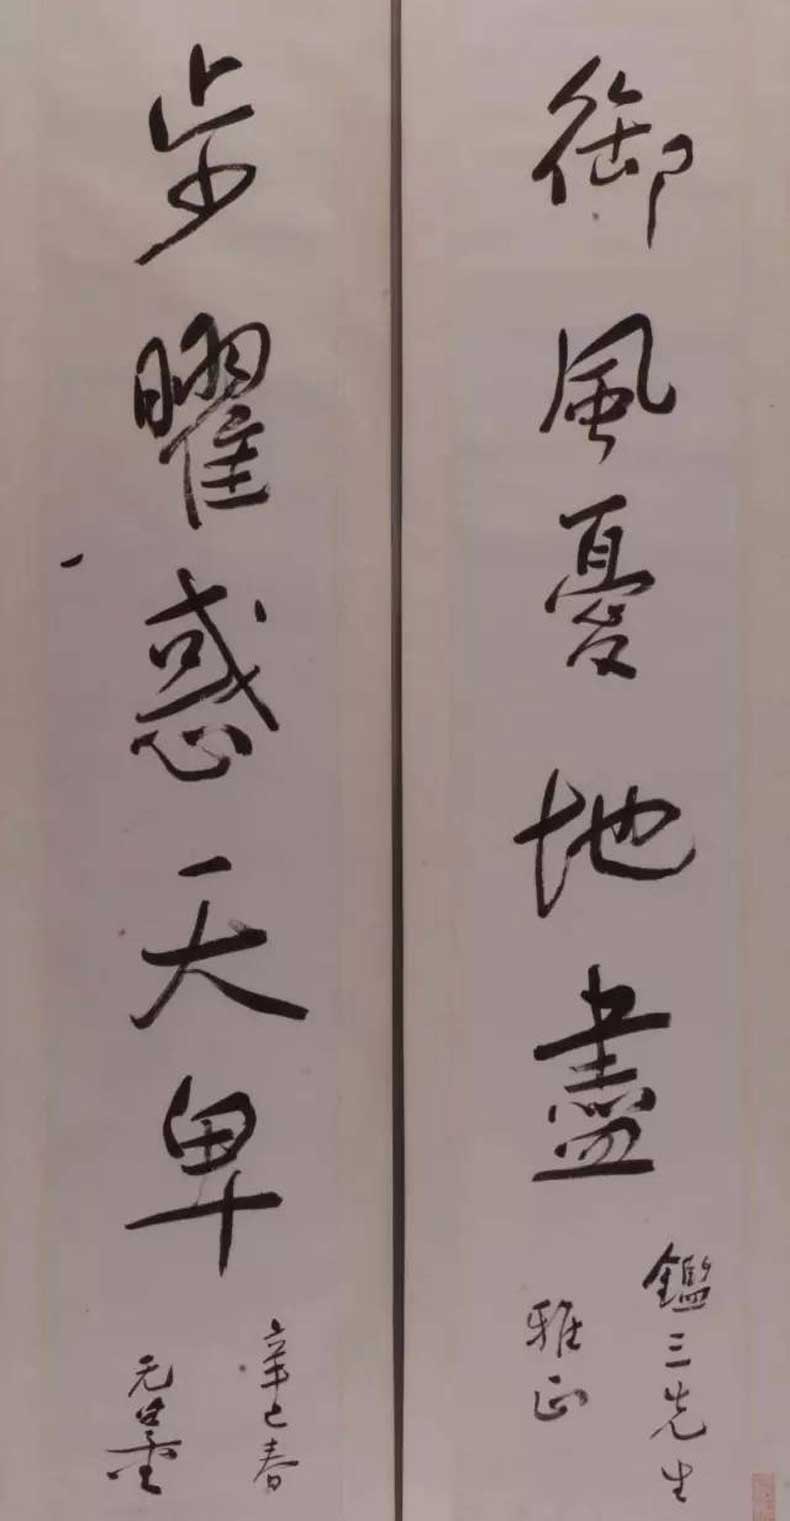 御風憂地盡
鑑三先生
雅正
步曜惑天卑
辛巳春
元墨